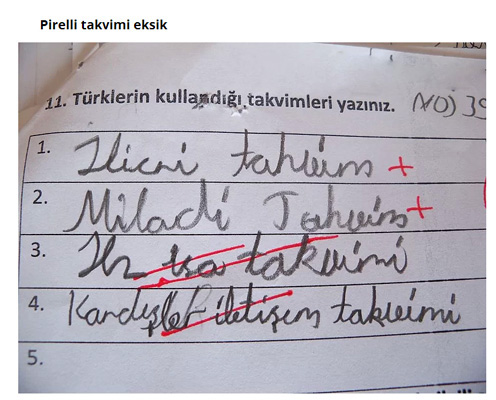 Pirelli takvimi eksik
11. Türklerin kullandığı takvimleri yazınız. NO) 39
1. Hicri takvim +
2. Miladi Takvim +
3. Hz isa takvimi
4. Kardeşler iletişim takvimi
5.